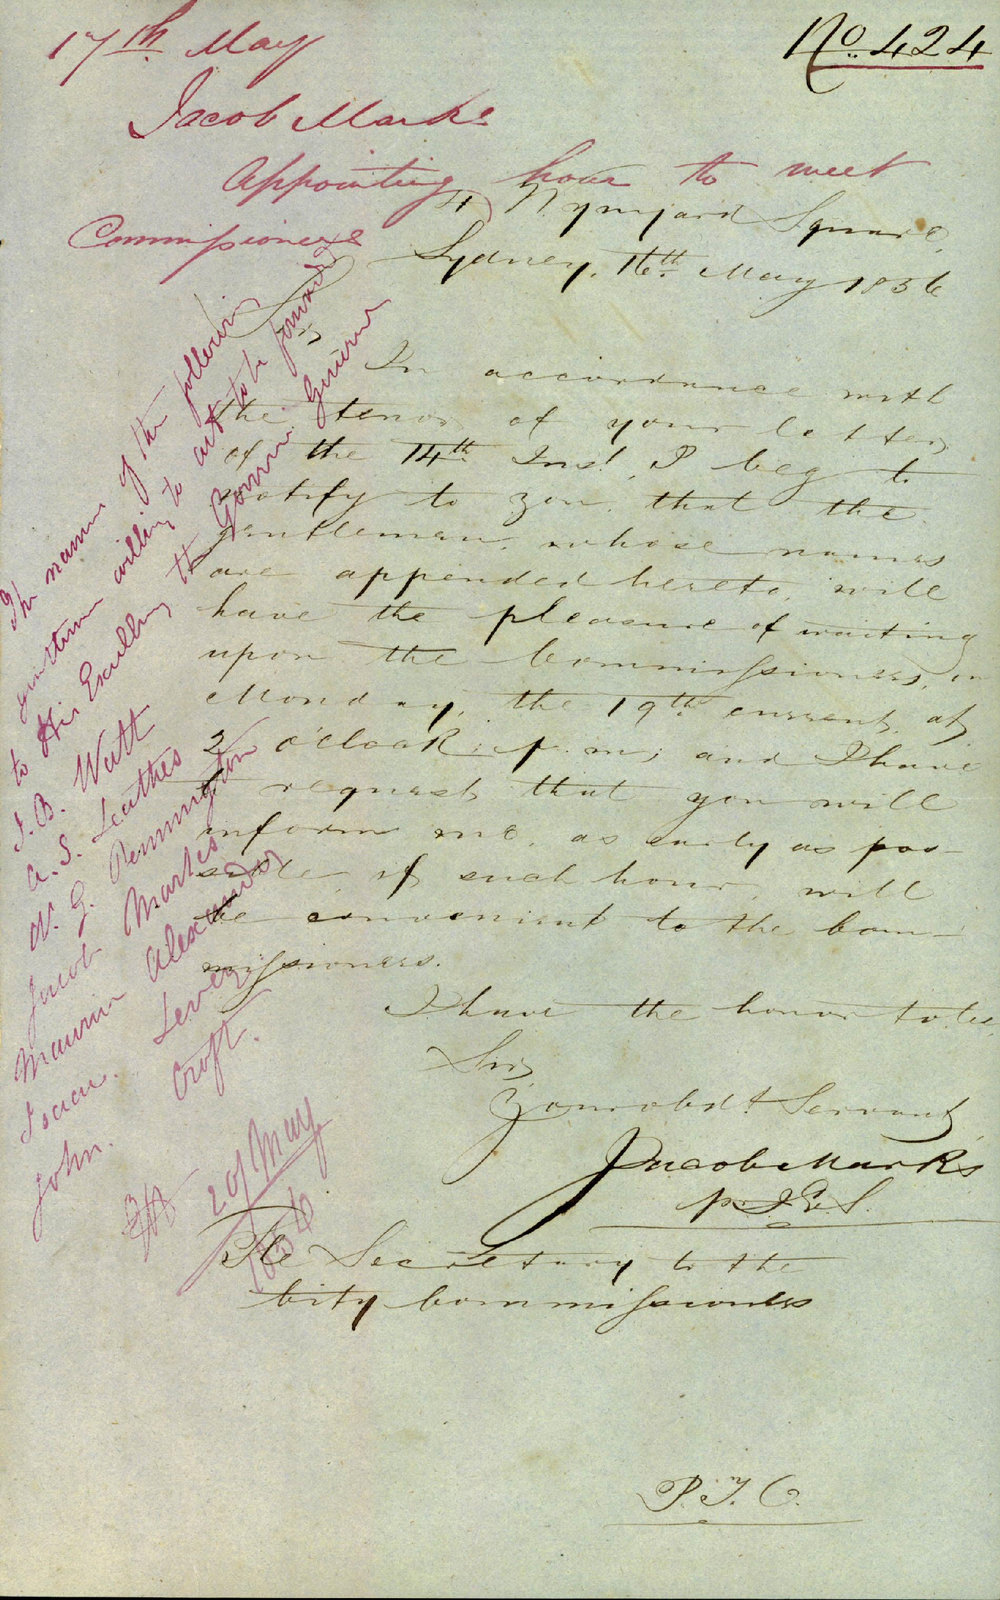 No. 424
17th May
Jacob Marks
Appointing hour to meet
Commissioners
4 Wynyard Square,
Sydney, 16th May 1856
Sir,
In accordance with
the tenor of your letter,
of the 14th Inst, I beg to
notify to you, that the
gentlemen, whose names
are appended hereto, will
have the pleasure of waiting
upon the Commissioners, on
Monday, the 19th current, at
2 o'cloak, p.m; and I have
to request that you will
inform me, as early as pos-
sible, if such hour, will
be convenient to the Com-
missioners.
I have the honor to be,
Sir,
Your obdt Servant,
Jacob Marks
The Secretary to the
City Commissioners
P.T.O.
The names of the following
gentlemen willing to act to be forwarded
to His Excellency the Governor General
J. B. Watt
A. S. Leathes
W. G. Pennington
Jacob Marks
Maurice Alexander
Isaac Levey
John Croft.
20 May
1856